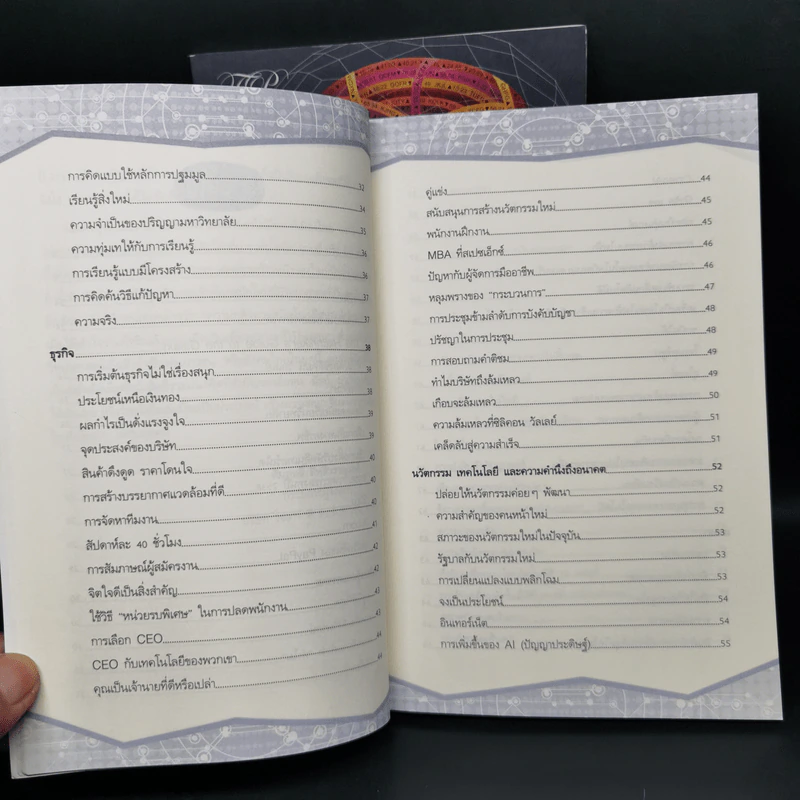 การคิดแบบใช้หลักการปฐมมูล 32
เรียนรู้สิ่งใหม่ 34
ความจำเป็นของปริญญามหาวิทยาลัย 35
ความทุ่มเทให้กับการเรียนรู้ 36
การเรียนรู้แบบมีโครงสร้าง 36
การคิดค้นวิธีแก้ปัญหา 37
ความจริง 37
ธุรกิจ 38
การเริ่มต้นธุรกิจไม่ใช่เรื่องสนุก 38
ประโยชน์เหนือเงินทอง 38
ผลกำไรเป็นตั่งแรงจูงใจ 39
จุดประสงค์ของบริษัท 39
สินค้าดึงดูด ราคาโดนใจ 40
การสร้างบรรยากาศแวดล้อมที่ดี 40
การจัดหาทีมงาน 41
สัปดาห์ละ 40 ชั่วโมง 41
การสัมภาษณ์ผู้สมัครงาน 42
จิตใจดีเป็นสิ่งสำคัญ 42
ใช้วิธี "หน่วยรบพิเศษ" ในการปลดพนักงาน 43
การเลือก CEO 44
CEO กับเทคโนโลยีของพวกเขา 44
คุณเป็นเจ้านายที่ดีหรือเปล่า 44
คู่แข่ง 44
สนับสนุนการสร้างนวัตกรรมใหม่ 45
พนักงานฝึกงาน 45
MBA ที่สเปซเอ็กซ์ 46
ปัญหากับผู้จัดการมืออาชีพ 46
หลุมพรางของ "กระบวนการ" 47
การประชุมข้ามลำดับการบังคับบัญชา 48
ปรัชญาในการประชุม 48
การสอบถามคำติชม 49
ทำไมบริษัทถึงล้มเหลว 49
เกือบจะล้มเหลว 50
ความล้มเหลวที่ซิลิคอน วัลเลย์ 51
เคล็ดลับสู่ความสำเร็จ 51
นวัตกรรม เทคโนโลยี และความคำนึงถึงอนาคต 52
ปล่อยให้นวัตกรรมค่อยๆ พัฒนา 52
ความสำคัญของคนหน้าใหม่ 52
สภาวะของนวัตกรรมใหม่ในปัจจุบัน 53
รัฐบาลกับนวัตกรรมใหม่ 53
การเปลี่ยนแปลงแบบพลิกโฉม 53
จงเป็นประโยชน์ 54
อินเทอร์เน็ต 54
การเพิ่มขึ้นของ AI (ปัญญาประดิษฐ์) 55